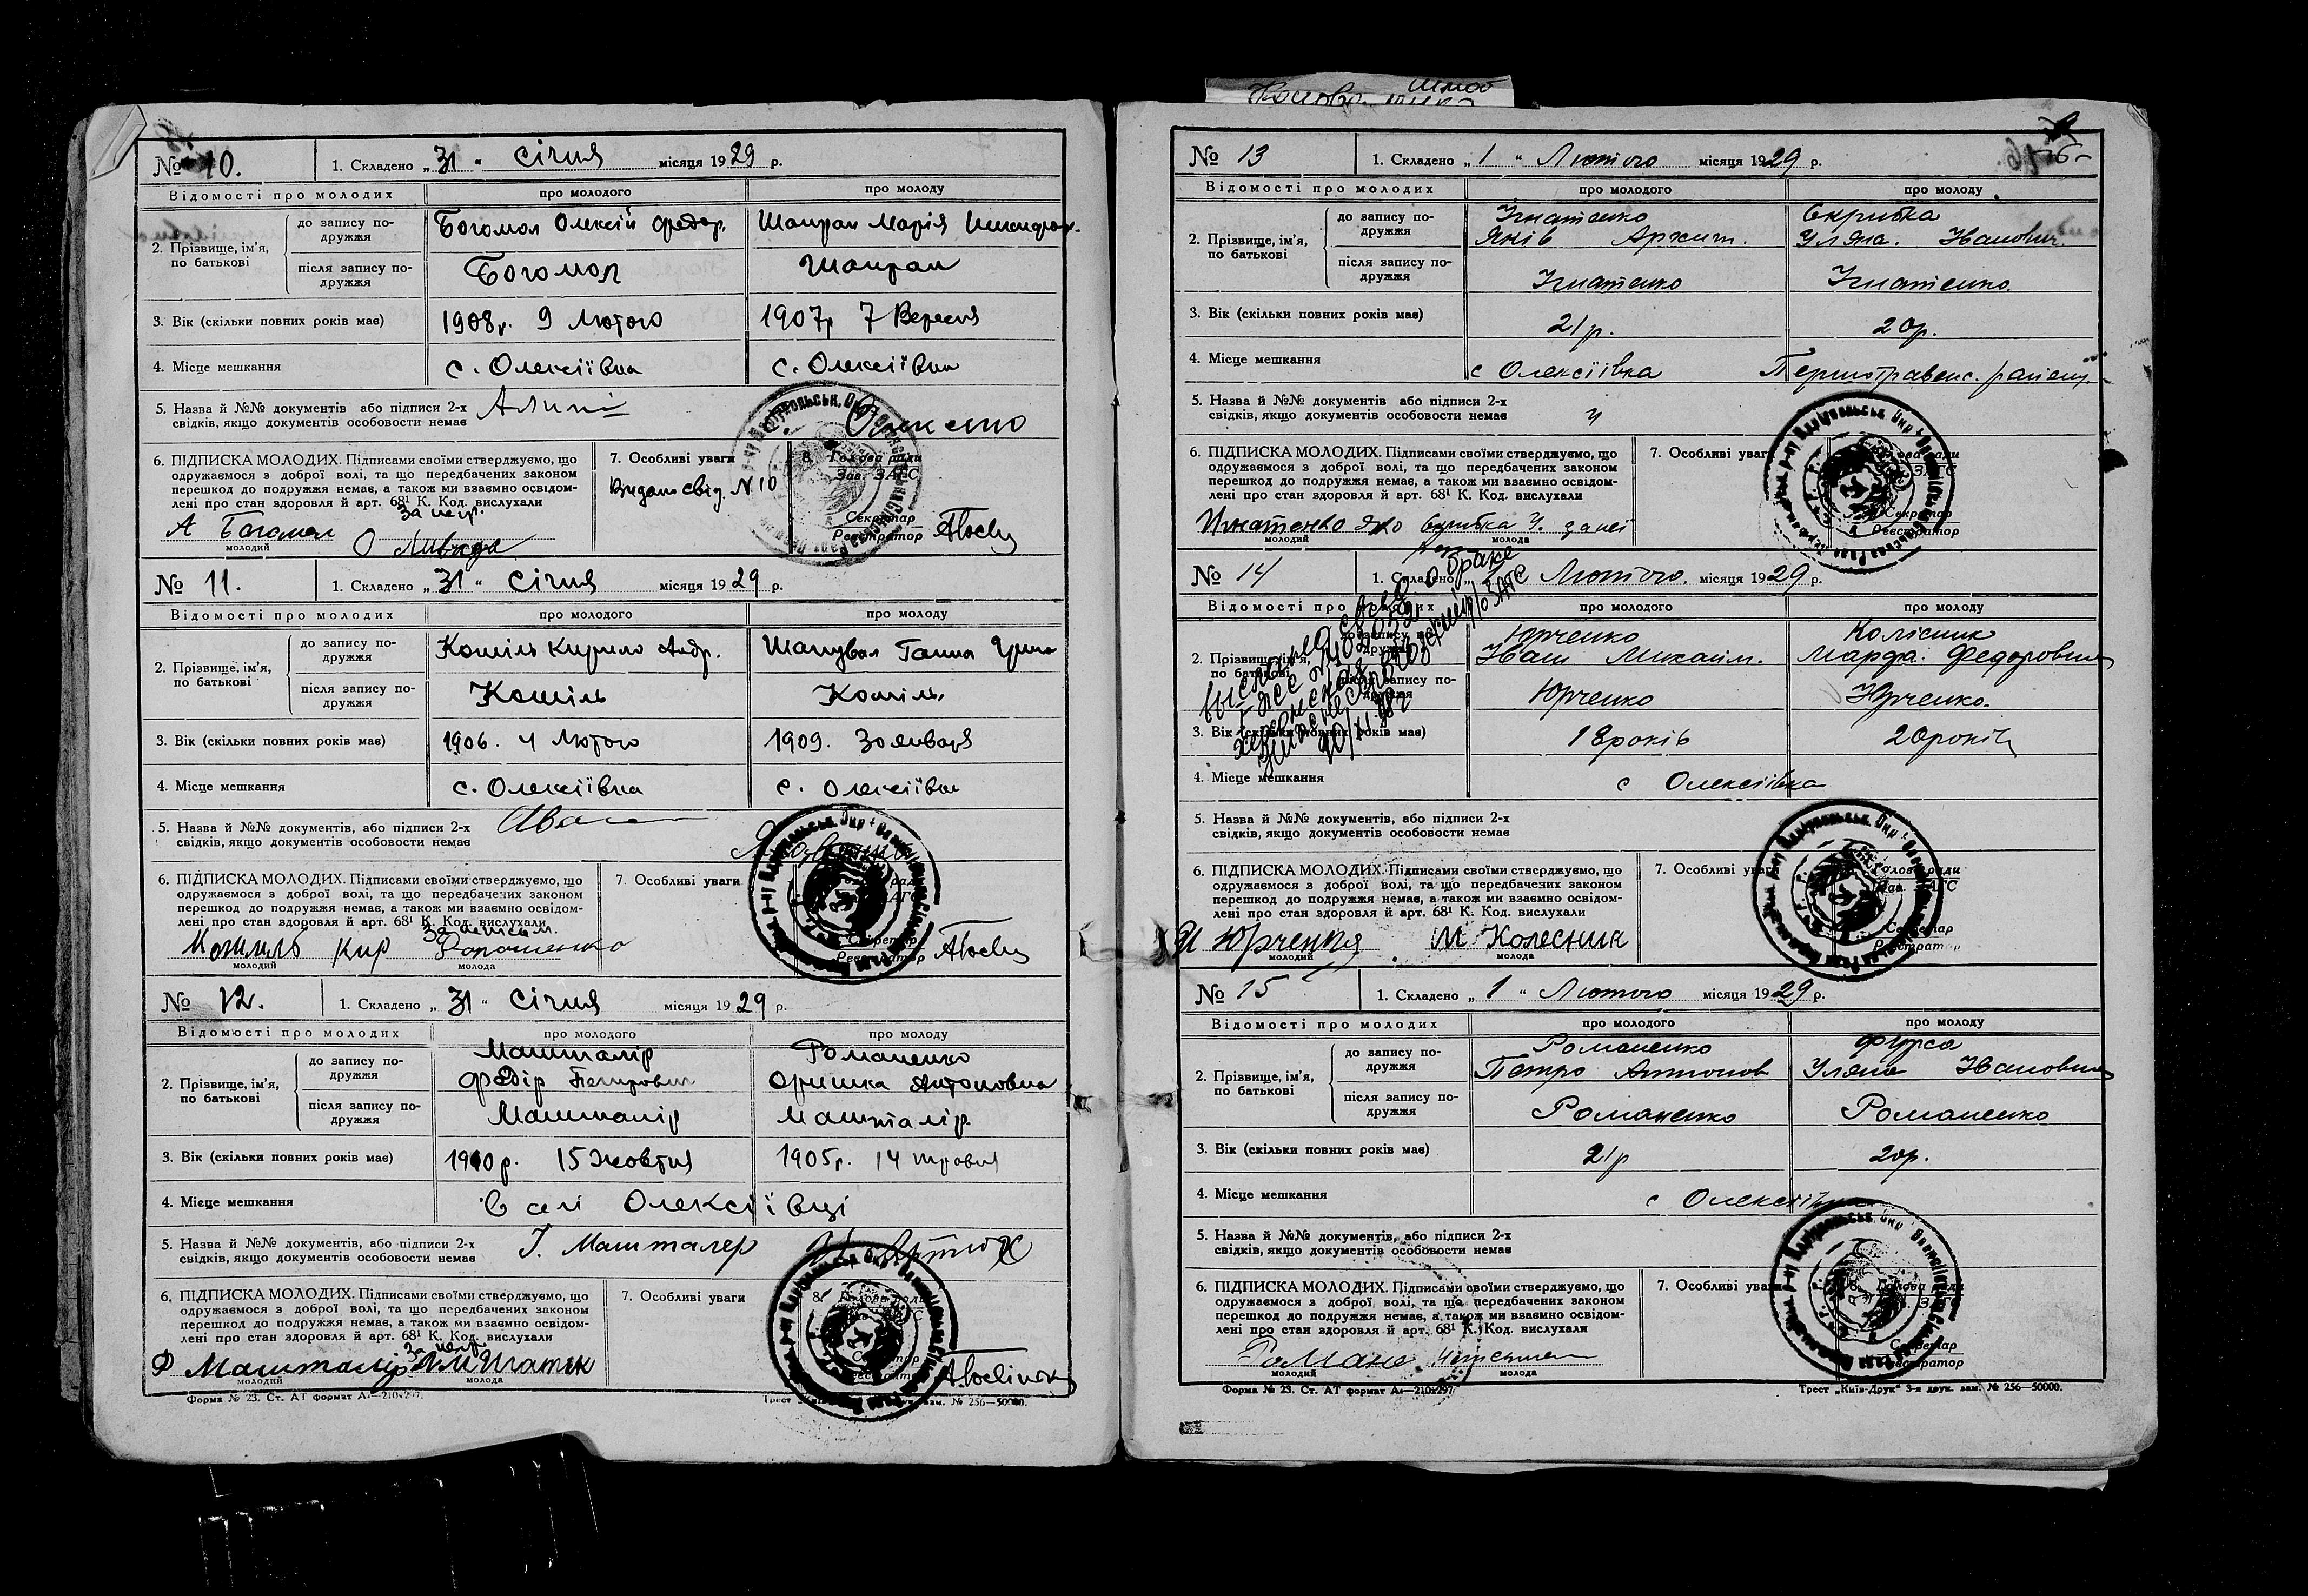 № 10.
1. Складено „31“ січня місяця 1929 р.
Відомості про молодих
про молодого
про молоду
2. Прізвище, ім'я, по батькові
до запису по-
дружжя
Богомол Олексій Федор.
Шапран Марія
після запису по-
дружжя
Богомол
Шапран
3. Вік (скільки повних років має)
1908р. 9 Лютого
1907р 7 Вересня
4. Місце мешкання
с. Олексіївка
с. Олексіївка
5. Назва й №№ документів або підписи 2-х
свідків, якщо документів особовости немає
6. ПІДПИСКА МОЛОДИХ. Підписами своїми стверджуємо, що
одружаємося з доброї волі, та що передбачених законом
перешкод до подружжя немає, а також ми взаємно освідом-
лені про стан здоров'я й арт. 68¹ К. Код. вислухали
А Богомол
За негр.
молодий
7. Особливі уваги
Видано свід. N 10
8. Голова ради
Зав. ЗАГС
Секретар
Реєстратор
№ 11.
1. Складено „31“ січня місяця 1929 р.
Відомості про молодих
про молодого
про молоду
2. Прізвище, ім'я,
по батькові
до запису по-
дружжя
Кошіль Кирило Андр.
Шаповал Ганна
після запису по-
дружжя
Кошіль
Кошіль
3. Вік (скільки повних років має)
1906. 4 Лютого
1909. 30 января
4. Місце мешкання
с. Олексіївка
с. Олексіївка
5. Назва й №№ документів, або підписи 2-х
свідків, якщо документів особовости немає
6. ПІДПИСКА МОЛОДИХ. Підписами своїми стверджуємо, що
одружаємося з доброї волі, та що передбачених законом
перешкод до подружжя немає, а також ми взаємно освідом-
лені про стан здоровля й арт. 68¹ К. Код. вислухали
Кошиль Кир
молодий
молода
7. Особливі уваги
Секретар
Реєстратор
№ 12.
1. Складено „31“ січня місяця 1929 р.
Відомості про молодих
про молодого
про молоду
2. Прізвище, ім'я,
по батькові
до запису по-
дружжя
Машталір
Федір Петрович
Романенко
Оришка Антоновна
після запису по-
дружжя
Машталір
Машталір
3. Вік (скільки повних років має)
1910р. 15 жовтня
1905р. 14 травня
4. Місце мешкання
в селі Олексіївці
5. Назва й №№ документів, або підписи 2-х
свідків, якщо документів особовости немає
І. Машталер
6. ПІДПИСКА МОЛОДИХ. Підписами своїми стверджуємо, що
одружаємося з доброї волі, та що передбачених законом
перешкод до подружжя немає, а також ми взаємно освідом-
лені про стан здоровля й арт. 68¹ К. Код. вислухали
Ф Машталір
молодий
молода
7. Особливі уваги
8.
Форма № 23. Ст. АТ формат А₄—210х297.
№ 256—50000.
№ 13
1. Складено „1“ Лютого місяця 1929 р.
Відомості про молодих
про молодого
про молоду
2. Прізвище, ім'я,
по батькові
до запису по-
дружжя
Ігнатенко
Яків Архип.
Скрибка
Уляна. Іванович.
після запису по-
дружжя
Ігнатенко
Ігнатенко.
3. Вік (скільки повних років має)
21р.
20р.
4. Місце мешкання
с Олексіївка
Першотравенс. району.
5. Назва й №№ документів або підписи 2-х
свідків, якщо документів особовости немає
6. ПІДПИСКА МОЛОДИХ. Підписами своїми стверджуємо, що
одружаємося з доброї волі, та що передбачених законом
перешкод до подружжя немає, а також ми взаємно освідом-
лені про стан здоровля й арт. 68¹ К. Код. вислухали
Игнатенко Яко Скрибка У. за неі
молодий
молода
7. Особливі уваги
Секретар
Реєстратор
№ 14
1. Складено „1“ Лютого місяця 1929 р.
Відомості про молодих
про молодого
про молоду
2. Прізвище, ім'я,
по батькові
до запису по-
дружжя
Юрченко
Іван Михайл.
Колісник
Марфа. Федоровна
після запису по-
дружжя
Юрченко
Юрченко.
3. Вік (скільки повних років має)
18 років
20 років
4. Місце мешкання
с Олексіївка
5. Назва й №№ документів, або підписи 2-х
свідків, якщо документів особовости немає
6. ПІДПИСКА МОЛОДИХ. Підписами своїми стверджуємо, що
одружаємося з доброї волі, та що передбачених законом
перешкод до подружжя немає, а також ми взаємно освідом-
лені про стан здоровля й арт. 68¹ К. Код. вислухали
И Юрченко М Колесник
молодий
молода
7. Особливі уваги
Секретар
Реєстратор
№ 15
1. Складено „1“ Лютого місяця 1929 р.
Відомості про молодих
про молодого
про молоду
2. Прізвище, ім'я,
по батькові
до запису по-
дружжя
Романенко
Петро Антонов
Фурса
Уляна Івановна
після запису по-
дружжя
Романенко
Романенко
3. Вік (скільки повних років має)
21р
20р.
4. Місце мешкання
с Олексіївка
5. Назва й №№ документів, або підписи 2-х
свідків, якщо документів особовости немає
6. ПІДПИСКА МОЛОДИХ. Підписами своїми стверджуємо, що
одружаємося з доброї волі, та що передбачених законом
перешкод до подружжя немає, а також ми взаємно освідом-
лені про стан здоровля й арт. 68¹ К. Код. вислухали
Романе
молодий
молода
7. Особливі уваги
Секретар
Реєстратор
Форма № 23. Ст. АТ формат А₄—210х297
Трест „Київ-Друк“ 3-я друк. зам. № 256—50000.